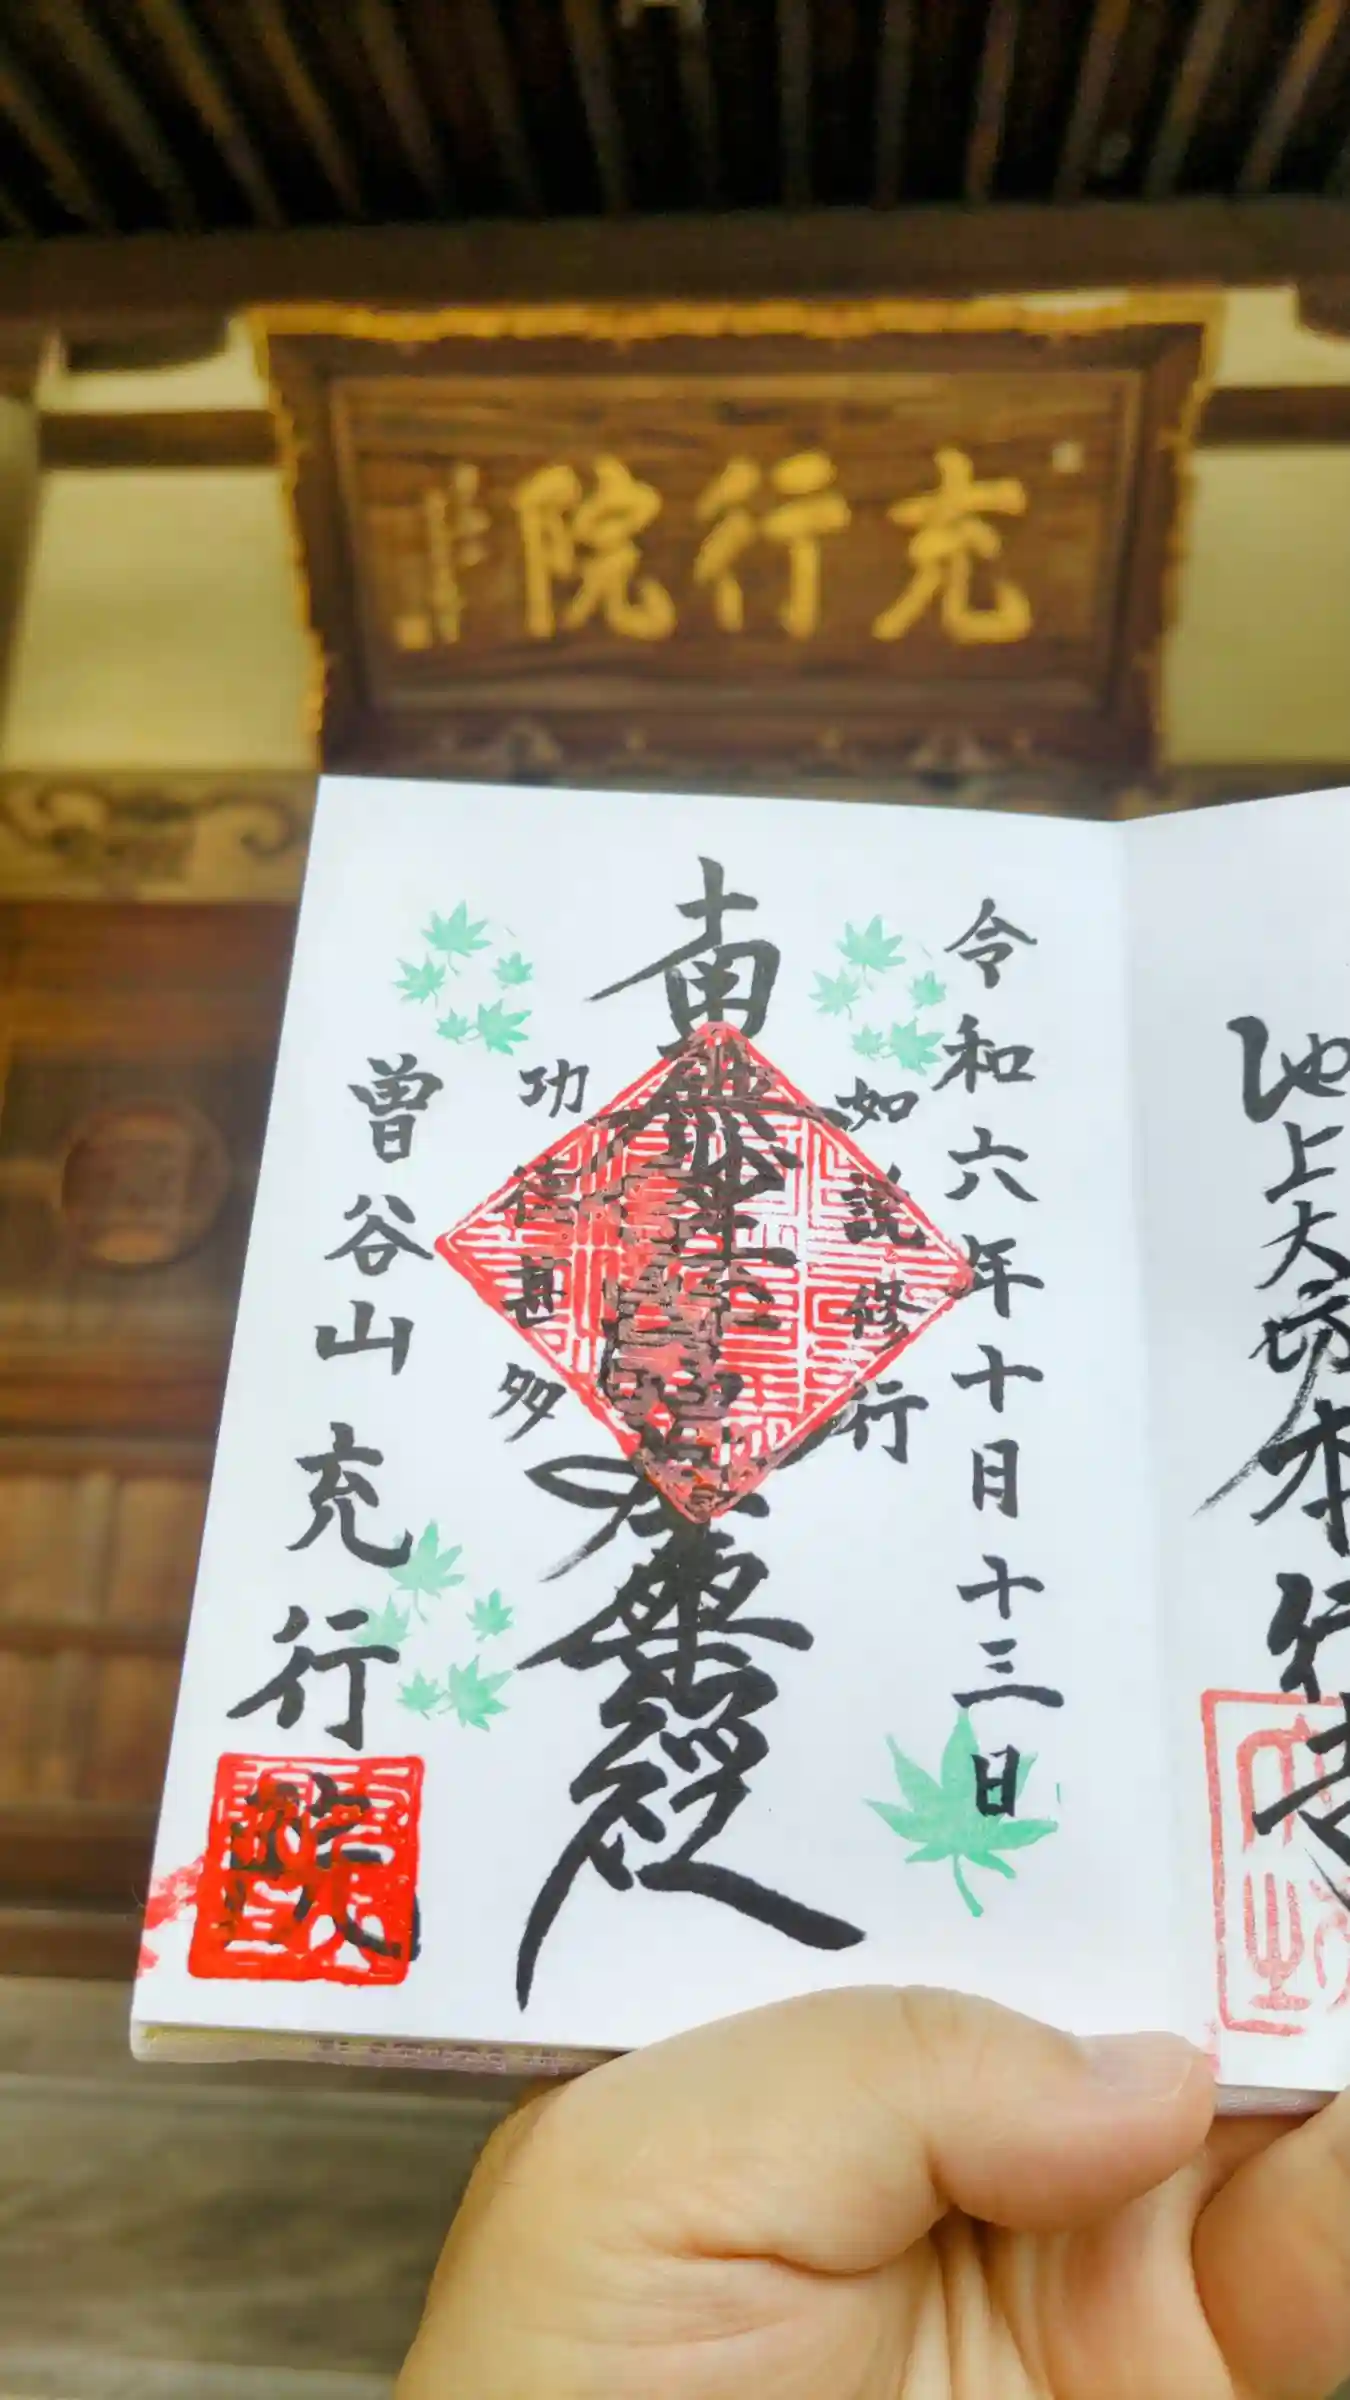 充行院
池上大坊本行寺
令和六年十月十三日
如説修行
南無妙法蓮華経
功徳甚多
曽谷山 充行院